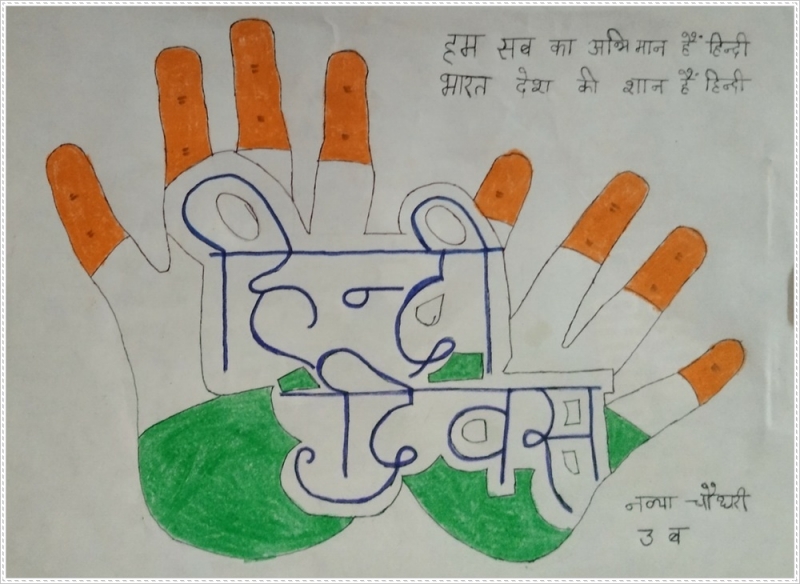 हम सब का अभिमान हैं हिन्दी
भारत देश की शान हैं हिन्दी
हिन्दी
दिवस
नव्या चौधरी
3 ब